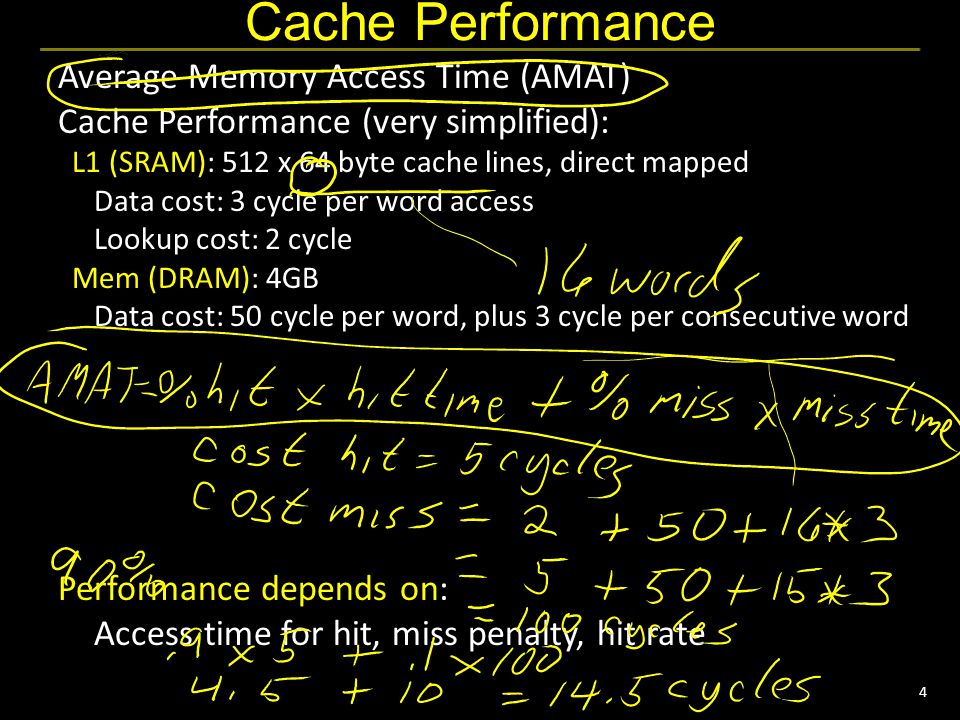 Cache Performance
Average Memory Access Time (AMAT)
Cache Performance (very simplified):
L1 (SRAM): 512 x 64 byte cache lines, direct mapped
Data cost: 3 cycle per word access
Lookup cost: 2 cycle
16 words
Mem (DRAM): 4GB
Data cost: 50 cycle per word, plus 3 cycle per consecutive word
AMAT = % hit x hit time + % miss x miss time
cost hit = 5 cycles
cost miss = 2 + 50 + 16 * 3
90%
= 5 + 50 + 15 * 3
Performance depends on:
= 100 cycles
Access time for hit, miss penalty, hit rate
.9 x 5 + .1 x 100
4.5 + 10 = 14.5 cycles
4